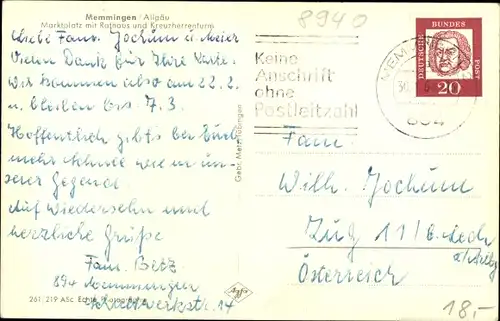 8940
Memmingen / Allgäu
Marktplatz mit Rathaus und Kreuzherrenturm
Liebe Fam. Jochum u. Meier
Vielen Dank für Ihre Karte.
Wir kommen also am 22.2.
u. bleiben bis 7.3.
Hoffentlich gibts bei Euch
mehr Schnee wie in un-
serer Gegend
Auf Wiedersehn und
herzliche Grüße
Fam. Betz
894 Memmingen
Kraftwerkstr. 14
261 219 A5c Echte Photographie
Gebr. Metz, Tübingen
Agfa
Keine
Anschrift
ohne
Postleitzahl
MEMMINGEN
894
DEUTSCHE BUNDES POST
20
Fam.
Wilh. Jochum
Zug 11/b. Lech
a/Arlbg
Österreich
18,-